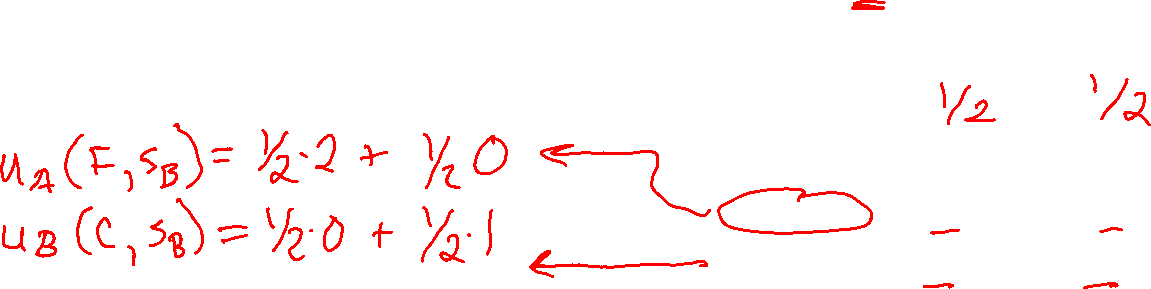 1/2 1/2
u_A(F, s_B) = 1/2·2 + 1/2 0
u_B(C, s_B) = 1/2·0 + 1/2·1